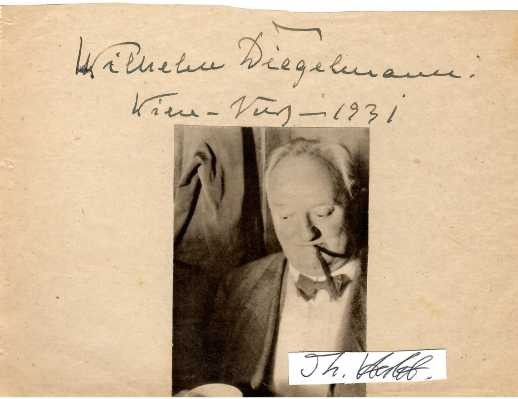 Wilhelm Diegelmann.
Wien – – 1931
Th.